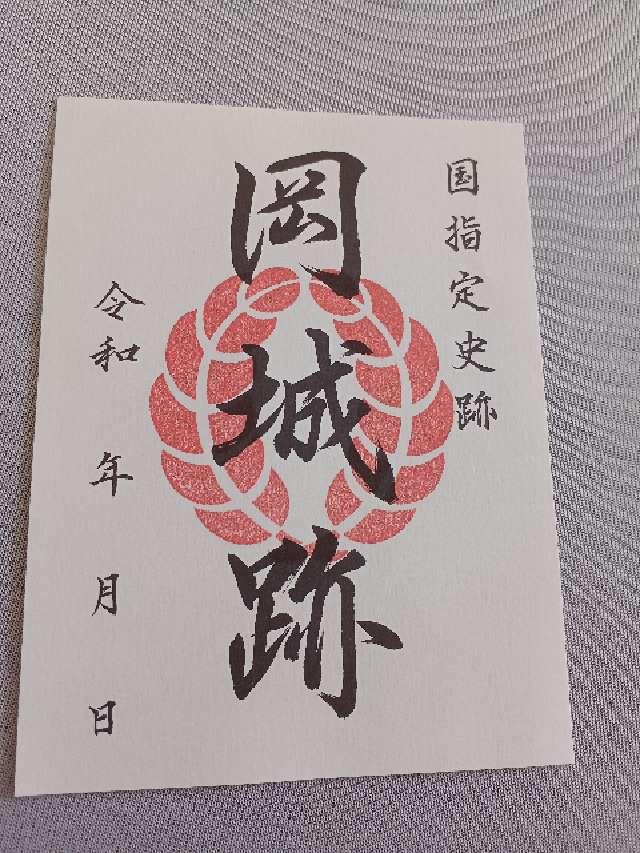 国指定史跡
岡城跡
令和 年 月 日